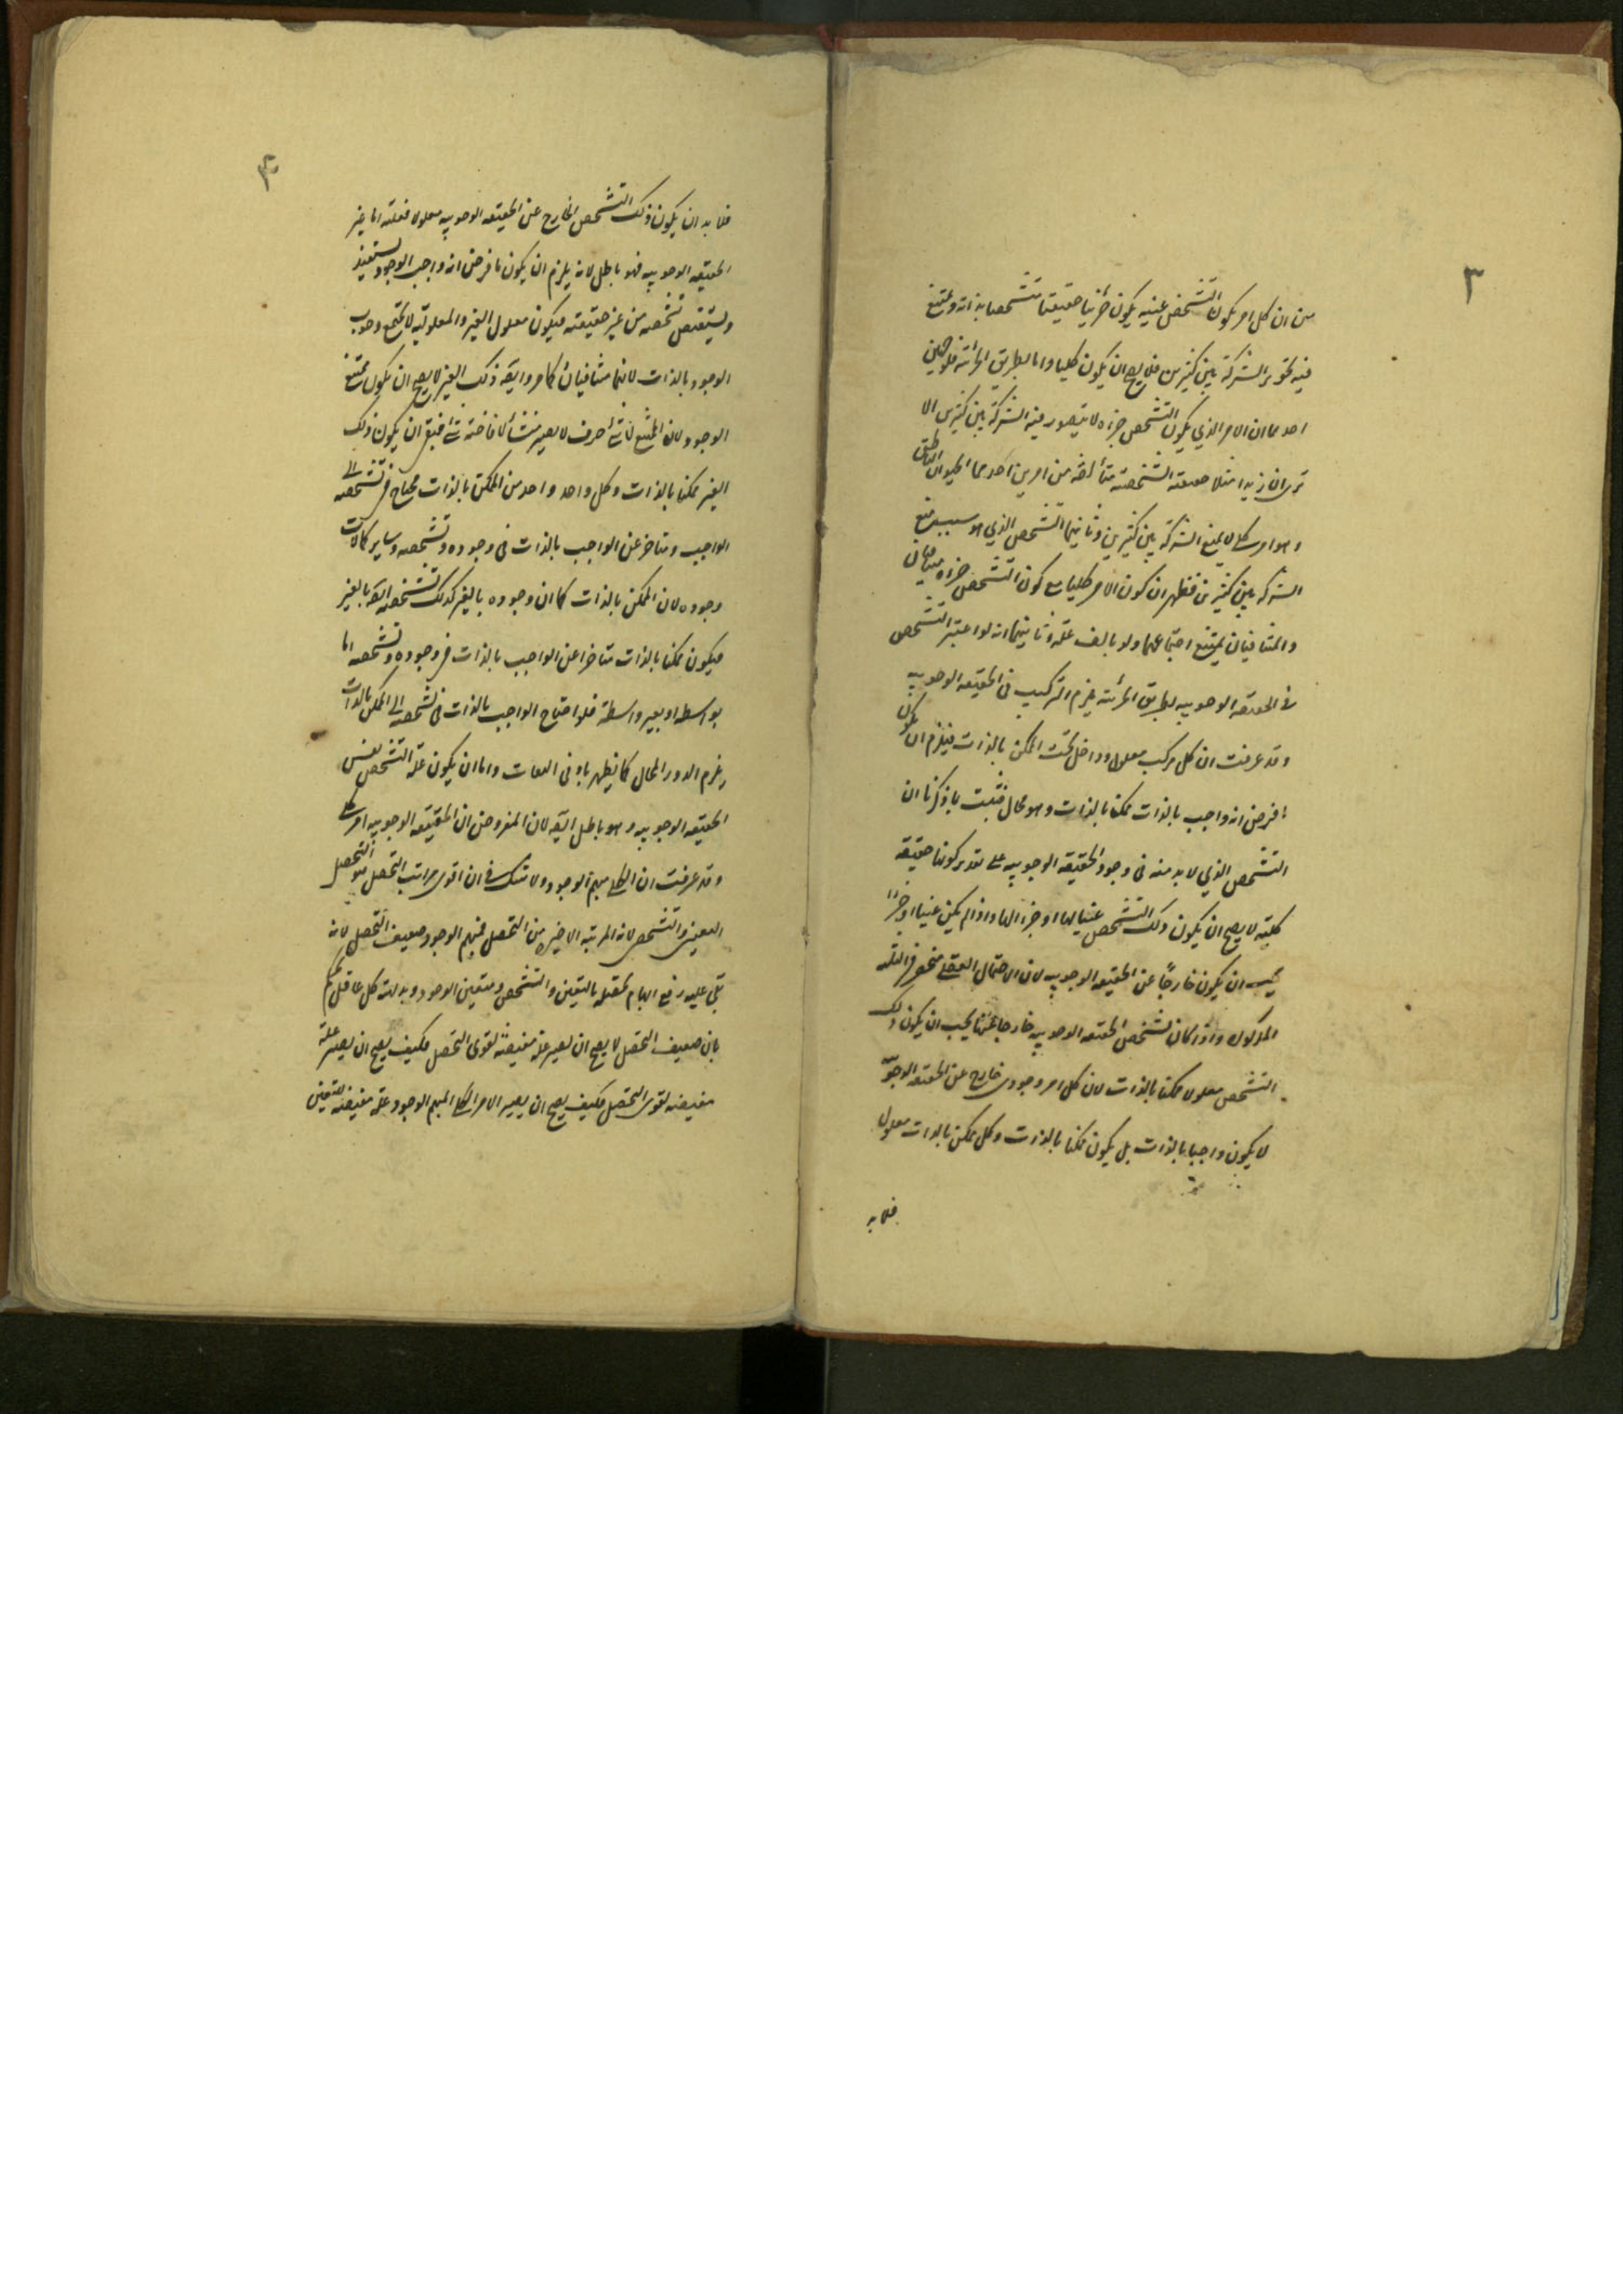 ٣
من ان كل امر يكون التشخص عينه يكون جزئيا حقيقيا متشخصا بذاته ويمتنع
فيه تجويز الشركة بين كثيرين فلا يصح ان يكون كليا واما بطريق الجزئية فلوجهين
احدهما ان الامر الذي يكون التشخص جزءه لا يتصور فيه الشركة بين كثيرين الا
ترى ان زيدا مثلا حقيقته الشخصية متألفة من امرين احدهما الحيوان الناطق
وهو امر كلي لا يمنع الشركة بين كثيرين وثانيهما التشخص الذي هو سبب منع
الشركة بين كثيرين فظهر ان كون الامر كليا مع كون التشخص جزءه متنافيان
والمتنافيان يمتنع اجتماعهما ولو بالف علة وثانيهما انه لو اعتبر التشخص
في الحقيقة الوجوبيه بطريق الجزئية يلزم التركيب في الحقيقه الوجوبيه
وقد عرفت ان كل مركب معلول وداخل تحت الممكن بالذات فيلزم ان يكون
ما فرض انه واجب بالذات ممكنا بالذات وهو محال فثبت بما ذكرنا ان
التشخص الذي لا بد منه في وجود الحقيقه الوجوبيه على تقدير كونها حقيقه
كليته لا يصح ان يكون ذلك التشخص عينا لها او جزءا لها واذا لم يكن عينا او جزءا
يجب ان يكون خارجا عن الحقيقه الوجوبيه لان الاحتمال العقلي منحصر في الثلثه
المذكوره واذا كان تشخص الحقيقه الوجوبيه خارجا عنها يجب ان يكون ذلك
التشخص معلولا ممكنا بالذات لان كل امر وجودي خارج عن الحقيقه الوجوبيه
لا يكون واجبا بالذات بل يكون ممكنا بالذات وكل ممكن بالذات معلول
فلا بد
٤
فلا بد ان يكون ذلك التشخص الخارج عن الحقيقه الوجوبيه معلولا فعلته اما غير
الحقيقه الوجوبيه فهو باطل لانه يلزم ان يكون ما فرض انه واجب الوجود يستفيد
ويستفيض تشخصه من غير حقيقته فيكون معلول الغير والمعلوليه لا تجتمع وجوب
الوجود بالذات لانهما متنافيان كما مر وايضه ذلك الغير لا يصح ان يكون ممتنع
الوجود لان الممتنع لا شئ صرف لا يصير منشأ لافاضته شئ فبقي ان يكون ذلك
الغير ممكنا بالذات وكل واحد واحد من الممكن بالذات محتاج في تشخصه الى
الواجب ومتاخر عن الواجب بالذات في وجوده وتشخصه وساير كمالات
وجوده لان الممكن بالذات كما ان وجوده بالغير كذلك تشخصه ايضه بالغير
فيكون ممكنا بالذات متاخرا عن الواجب بالذات في وجوده وتشخصه اما
بواسطه او بغير واسطة فلو احتاج الواجب بالذات في تشخصه الى الممكن بالذات
يلزم الدور المحال كما يظهر بادنى التفات واما ان يكون علة التشخص نفس
الحقيقه الوجوبيه وهو باطل ايضه لان المفروض ان الحقيقه الوجوبيه امر كلي
وقد عرفت ان الكلي مبهم الوجود ولا شك في ان اقوى مراتب التحصل هو التحصل
التعيني والتشخصي لانه المرتبه الاخيرة من التحصل فمبهم الوجود ضعيف التحصل لانه
بقي عليه رفع ابهام تحصله بالتعين والتشخص ومتعين الوجود وبداهته كل عاقل يحكم
بان ضعيف التحصل لا يصح ان يصير علة مفيضة لقوى التحصل فكيف يصح ان يصير علة
مفيضه لقوى التحصل فكيف يصح ان يصير الامر الكلي المبهم الوجود علة مفيضه للتعين